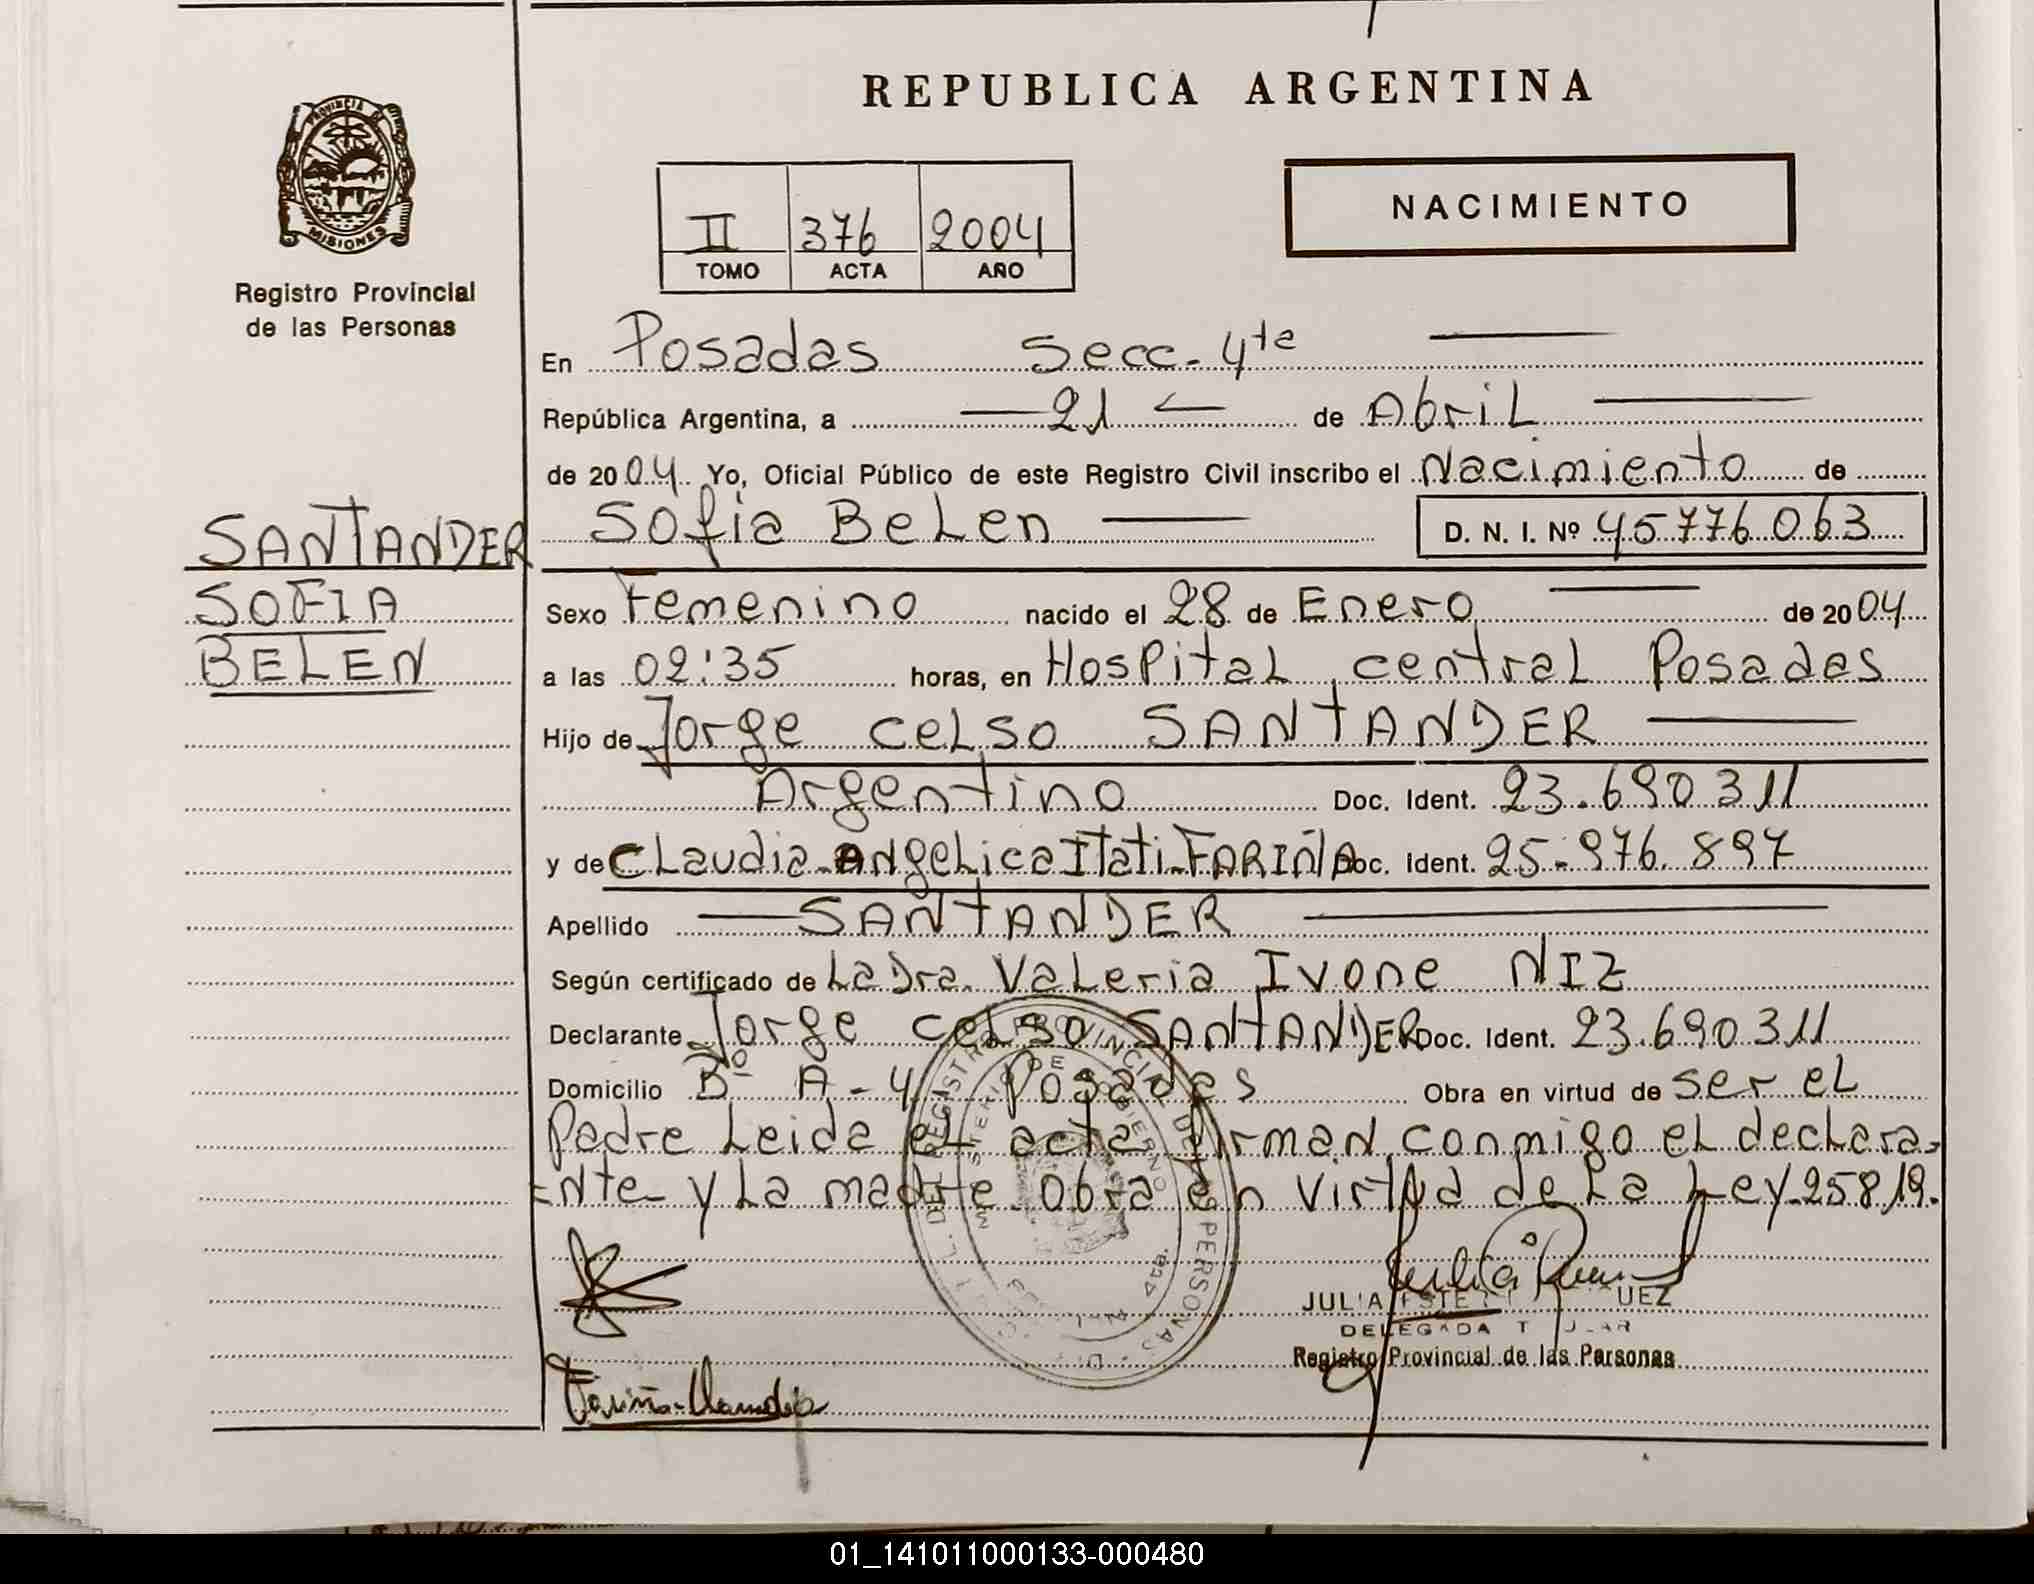 REPUBLICA ARGENTINA
PROVINCIA DE
MISIONES
Registro Provincial
de las Personas
NACIMIENTO
II 376 2004
TOMO ACTA AÑO
En Posadas Secc. 4ta
República Argentina, a 21 de Abril
de 2004 Yo, Oficial Público de este Registro Civil inscribo el Nacimiento de
SANTANDER
SOFIA
BELEN
Sofia Belen D. N. I. Nº 45776063
Sexo Femenino nacido el 28 de Enero de 2004
a las 02:35 horas, en Hospital central Posadas
Hijo de Jorge Celso SANTANDER
Argentino Doc. Ident. 23.690311
y de Claudia Angelica Itati FARIÑA Doc. Ident. 25.976.897
Apellido SANTANDER
Según certificado de La Dra. Valeria Ivone NIZ
Declarante Jorge Celso SANTANDER Doc. Ident. 23.690311
Domicilio Bº A-4 Posadas Obra en virtud de ser el
Padre Leida el acta firman conmigo el declara-
nte y La madre obra en virtud de La Ley 25819.
REGISTRO PROVINCIAL DE LAS PERSONAS
MINISTERIO DE GOBIERNO
JULIA ESTE UEZ
DELEGADA TITULAR
Registro Provincial de las Personas
Fariña Claudia
01_141011000133-000480